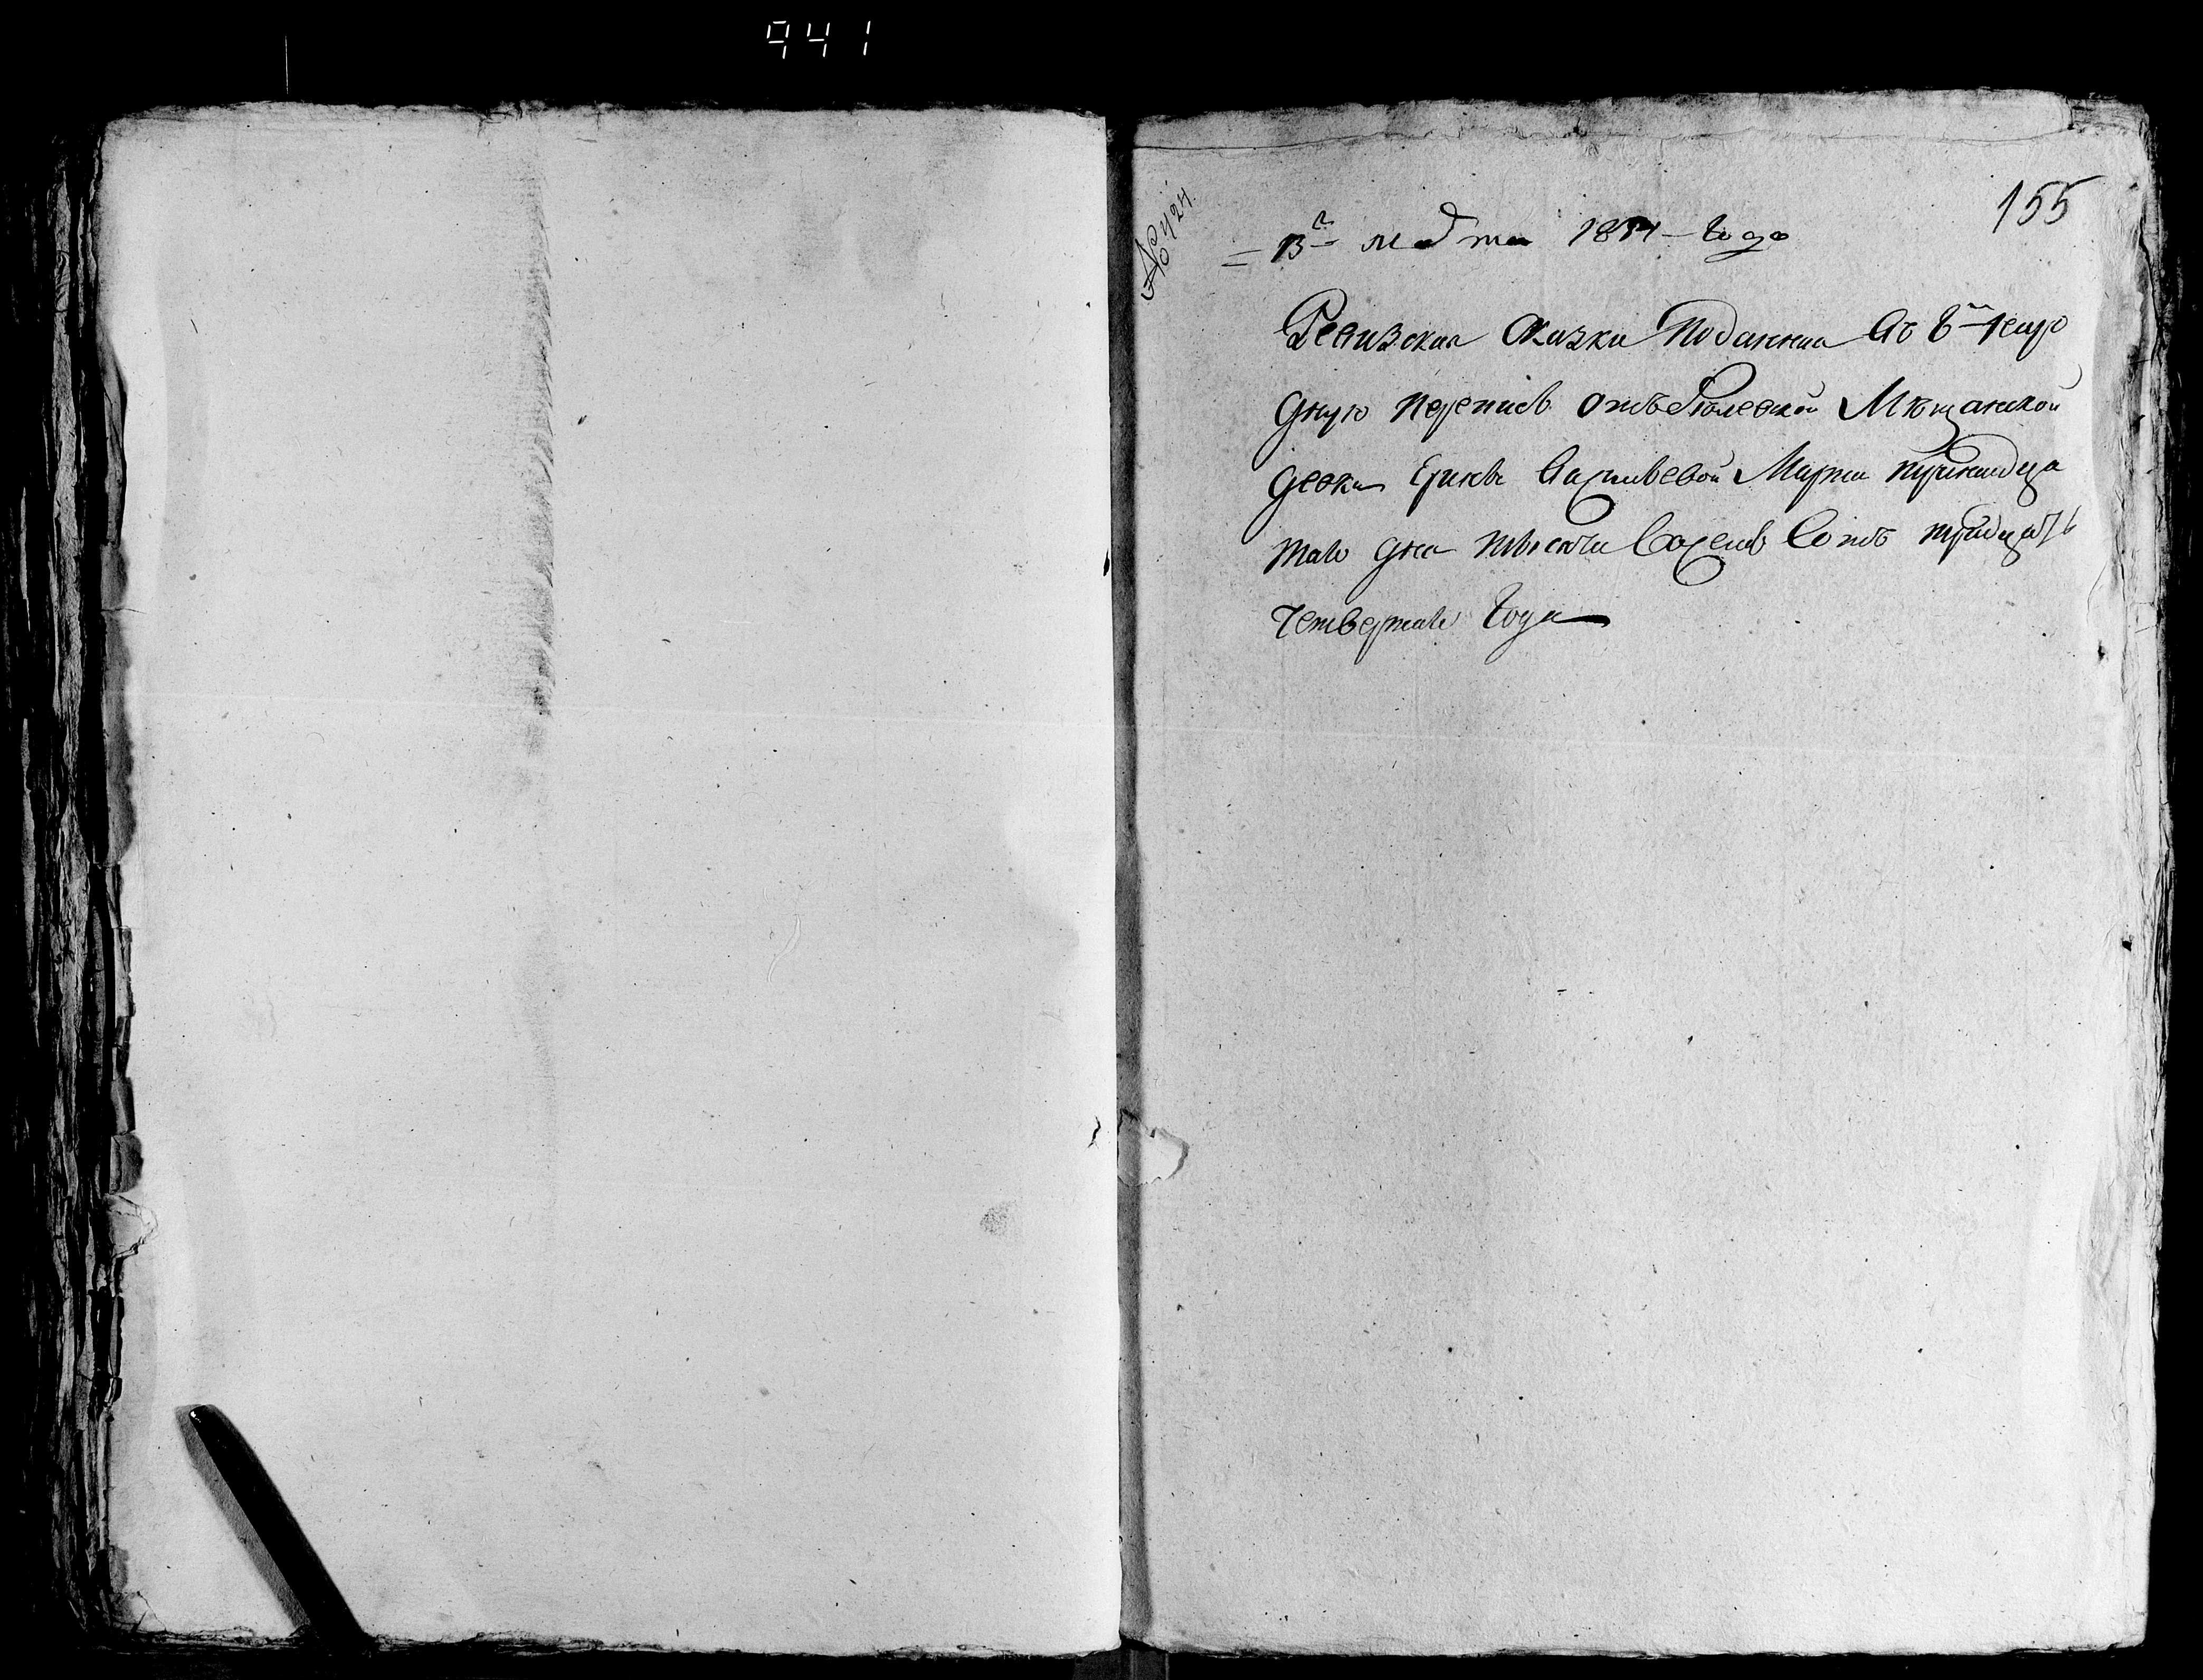 941
155
№ 424.
13го марта 1834 года
Ревизская Сказка Поданная Въ 8ю Наро
дную перепись отъ Мѣщанской
девки Васильевой Марта тринатца
таго дня тысяча Восемь Сотъ тридцать
Четвертаго Года